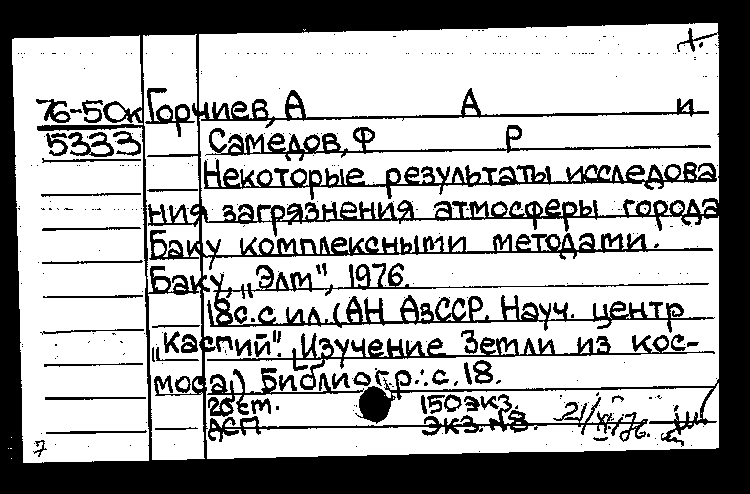 76-50к Горчиев, А А и
5333 Самедов, Ф Р
Некоторые результаты исследова
ния загрязнения атмосферы города
Баку комплексными методами.
Баку, „Элм", 1976.
18с. с ил. (АН АзССР. Науч. центр
„Каспий". Изучение Земли из кос-
моса) Библиогр.: с. 18.
20 см. 150 экз.
ДСП Экз. №8. 21/XI/76.
7